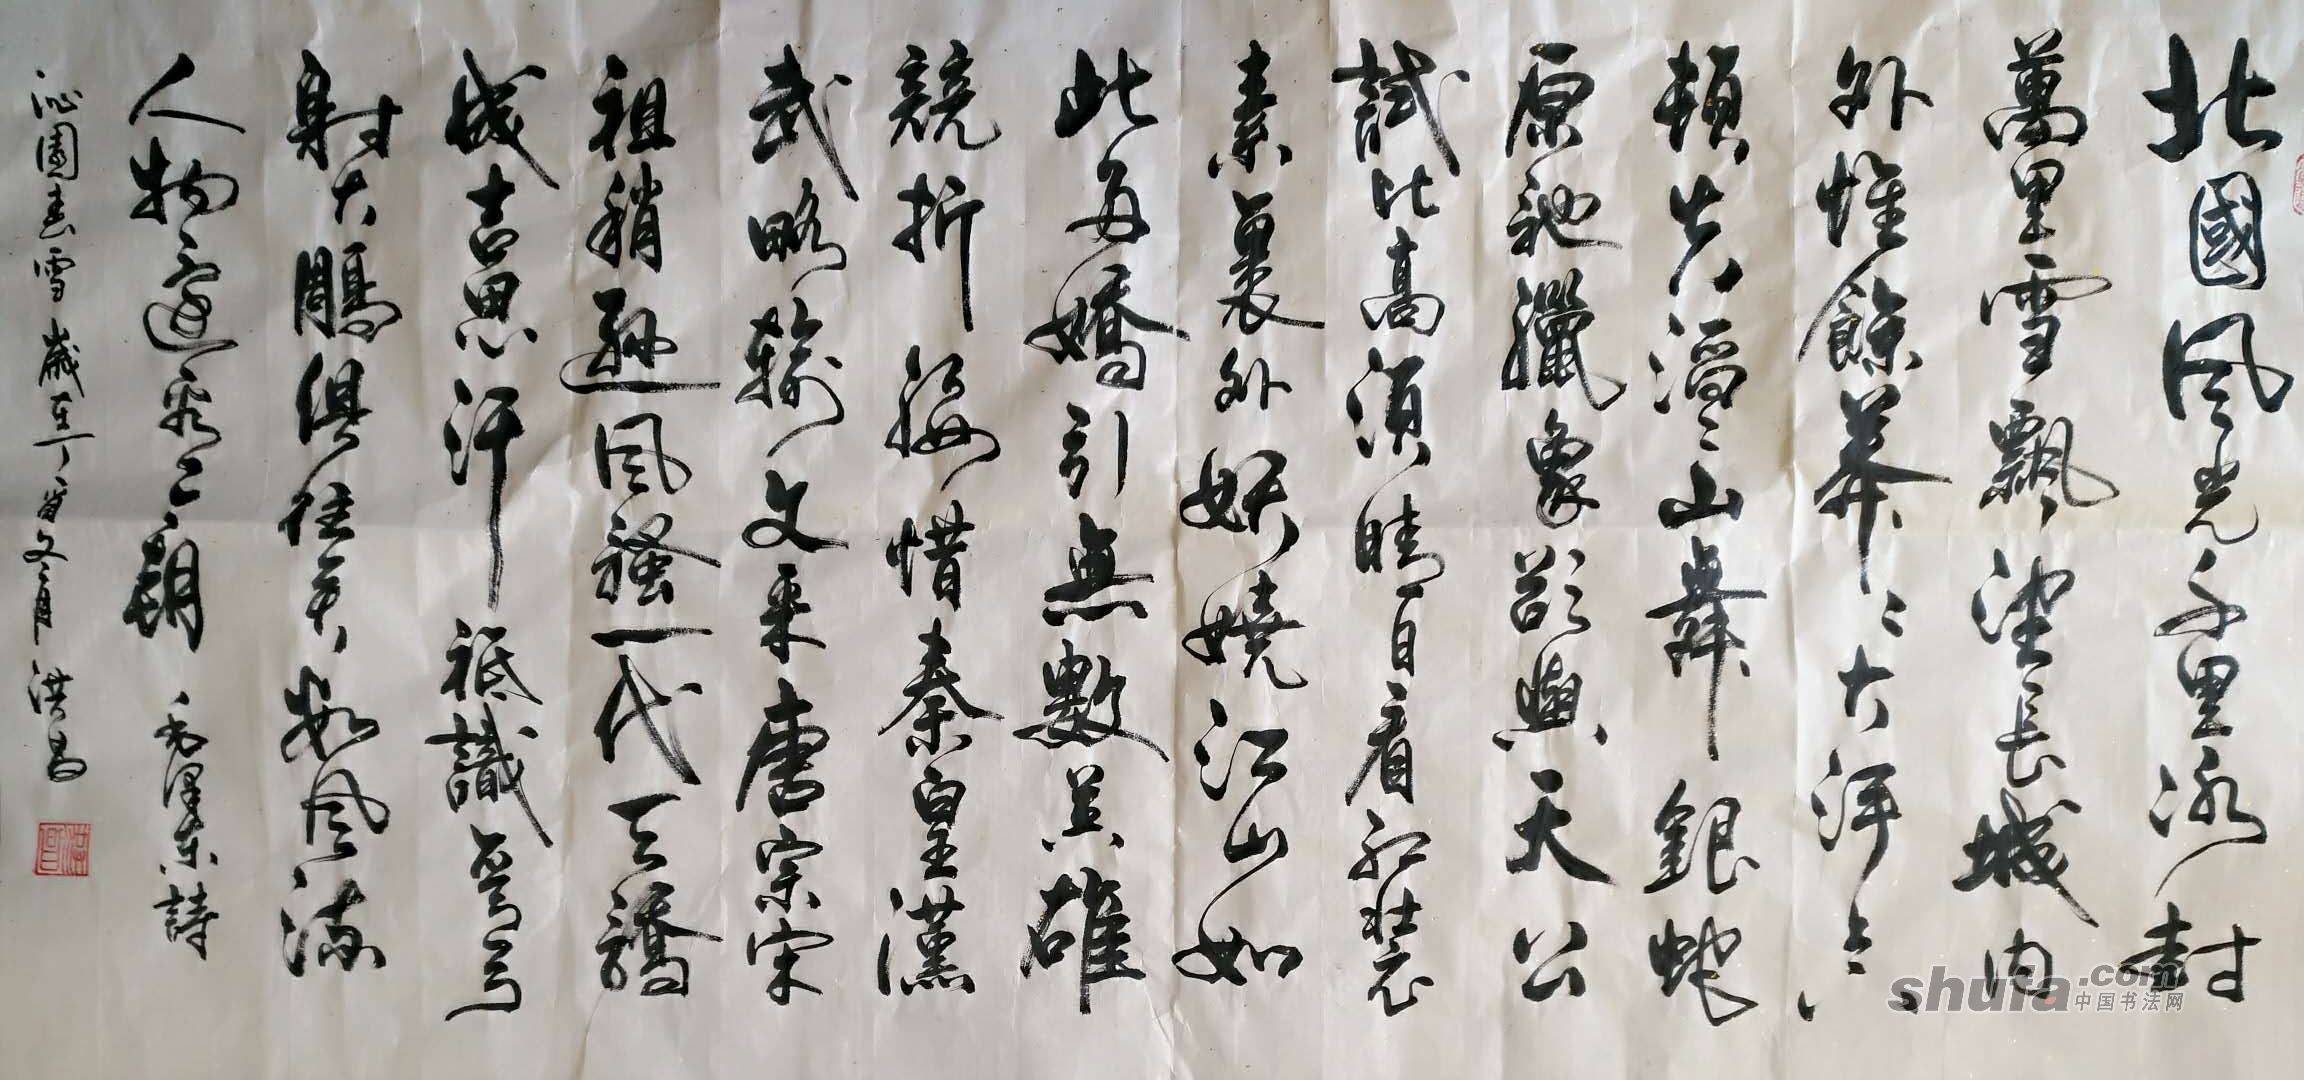 北國風光千里冰封
萬里雪飄望長城內
外惟餘莽〻大河上下
頓失滔〻山舞銀蛇
原馳蠟象欲與天公
試比高須晴日看紅裝
素裹外妖嬈江山如
此多嬌引無數英雄
競折腰惜秦皇漢
武略輸文采唐宗宋
祖稍遜風騷一代天驕
成吉思汗祗識彎弓
射大鵰俱往矣數風流
人物還看今朝 毛澤東詩
沁園春雪 歲在丁酉 月 洪昌
shufa.com
中国书法网